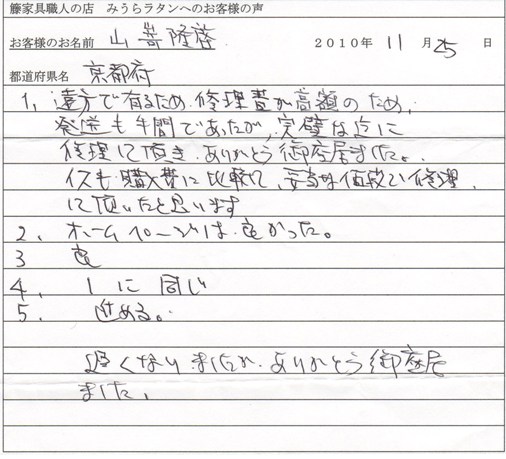 籐家具職人の店 みうらラタンへのお客様の声
お客様のお名前 山嵜隆啓
2010年 11月25日
都道府県名 京都府
1, 遠方で有るため、修理費が高額のため、
発送も手間であたが、完璧な迄に
修理して頂き、ありがとう御座居ました。
イスも、購入費に比較して、妥当な値段で修理、
して頂いたと思います
2. ホームページは、良かった。
3 良
4. 1に同じ
5. 進める。
遅くなりましたが、ありがとう御座居
ました、